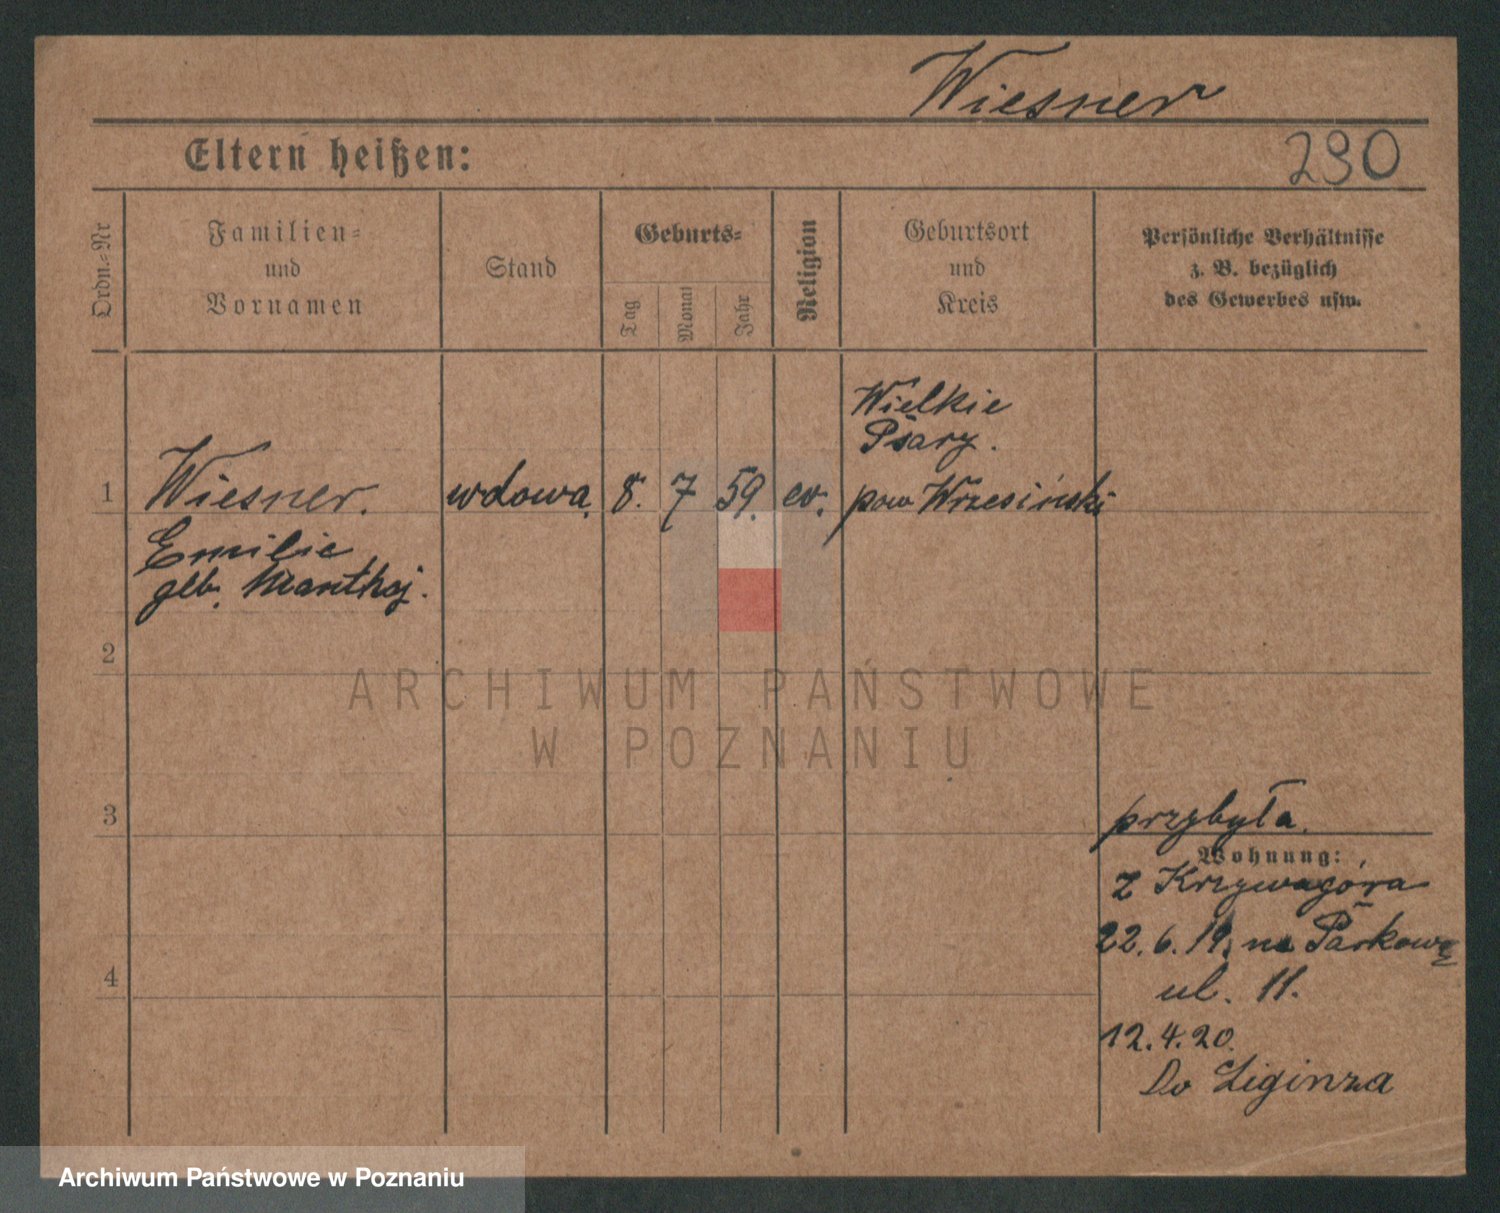 Wiesner
Eltern heißen:
290
Ordn.-Nr
Familien-
und
Vornamen
Stand
Geburts-
Tag
Monat
Jahr
Religion
Geburtsort
und
Kreis
Persönliche Verhältnisse
z. B. bezüglich
des Gewerbes usw.
Wielkie
Psary.
1 Wiesner. wdowa. 8. 7 59. ev. pow Wrzesiński
Emilie
geb. Manthej.
2
ARCHIWUM PAŃSTWOWE
W POZNANIU
3
przybyła
Wohnung:
z Krzywagóra
22. 6. 19. na Parkową
4
ul. 11.
12. 4. 20.
Do Liginza
Archiwum Państwowe w Poznaniu